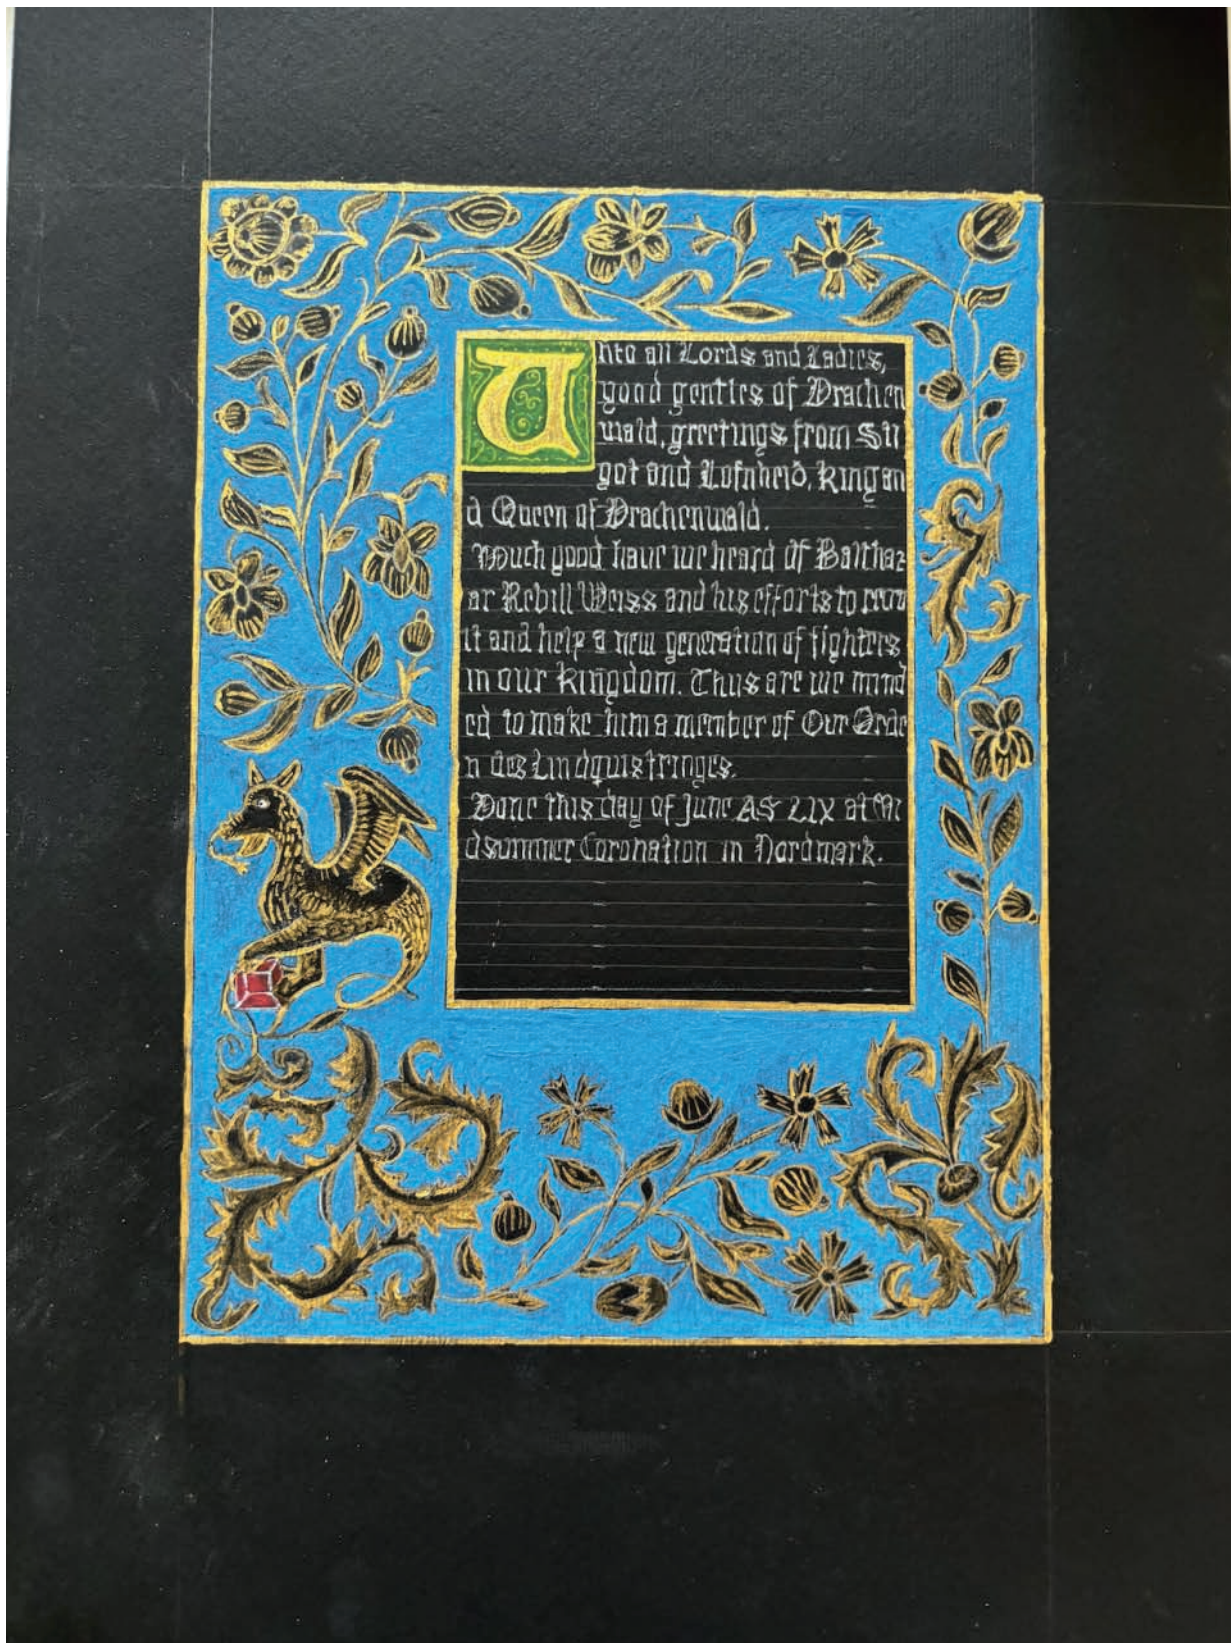 Unto all Lords and Ladies,
good gentles of Drachen
wald, greetings from Sti
got and Lofnheið, King an
d Queen of Drachenwald.
Much good have we heard of Balthaz
ar Rebill Weiss and his efforts to recru
it and help a new generation of fighters
in our kingdom. Thus are we mind
ed to make him a member of Our Orde
n des Lindquistringes.
Done this day of June AS LIX at Mi
dsummer Coronation in Nordmark.